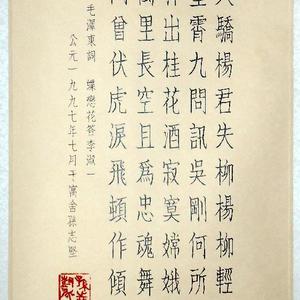 驕楊君失柳楊柳輕
霄九問訊吳剛何所
出桂花酒寂寞嫦娥
里長空且爲忠魂舞
曾伏虎淚飛頓作傾
毛澤東詞 蝶戀花答李淑一
公元一九九七年七月于寓舍孫志堅